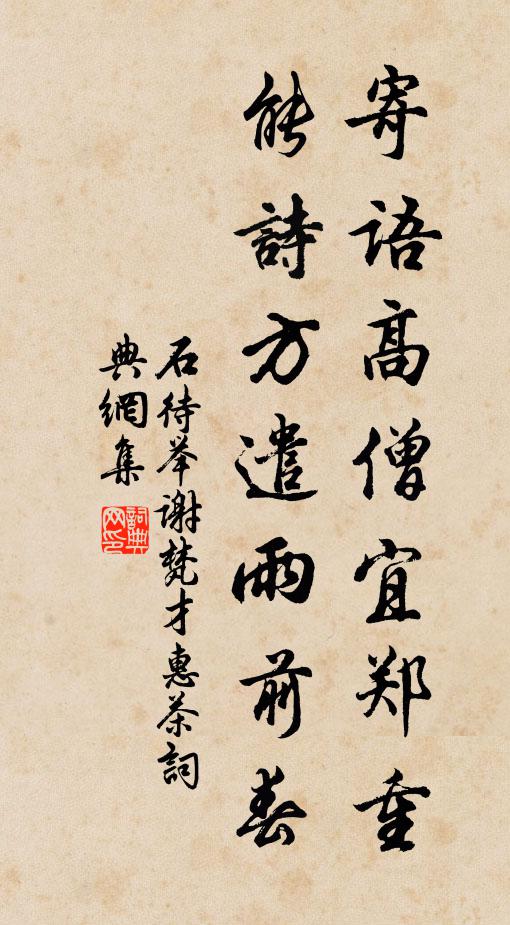 寄语高僧宜郑重
能詩方遣雨前春
石待举谢梵才惠茶詞
典網集
詞典網印